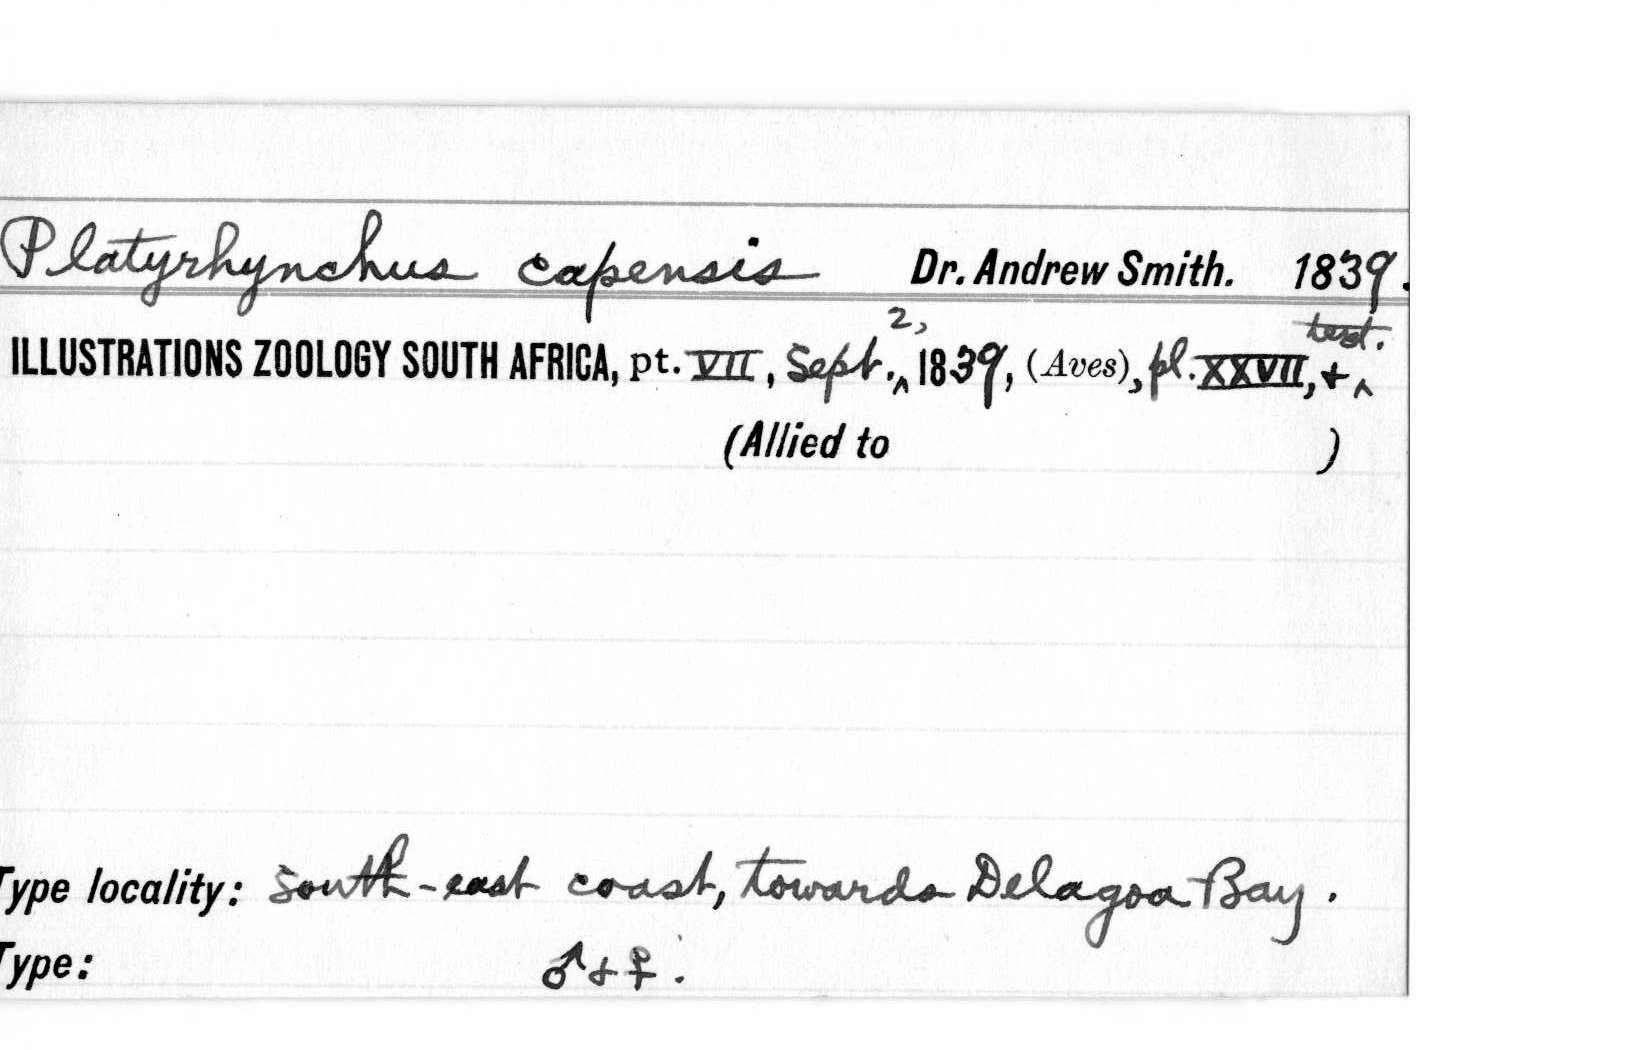 Platyrhynchus capensis Dr. Andrew Smith. 1839.
ILLUSTRATIONS ZOOLOGY SOUTH AFRICA, pt. VII, Sept. ‸ 2, 1839, (Aves), pl. XXVII, + ‸ text.
(Allied to )
Type locality: South-east coast, towards Delagoa Bay.
Type: ♂ + ♀.